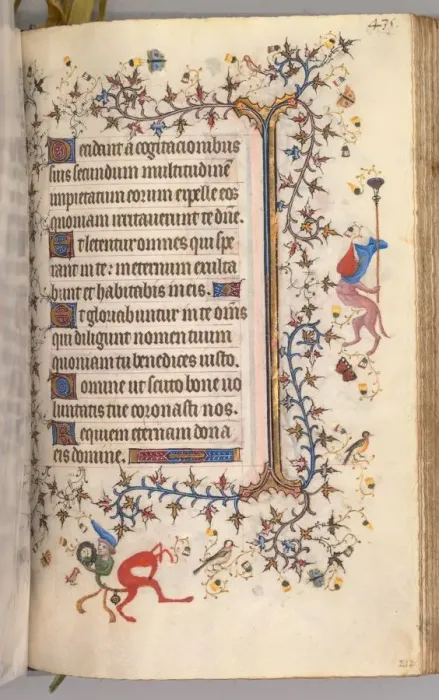 475.
Decidant a cogitacionibus
suis secundum multitudinē
impietatum eorum expelle eos
quoniam irritauerunt te dn̄e.
Et letentur omnes qui spe
rant in te: in eternum exulta
bunt et habitabis in eis.
Et gloriabuntur in te om̄s
qui diligunt nomen tuum
quoniam tu benedices iusto.
Domine ut scuto bone uo
luntatis tue coronasti nos.
Requiem eternam dona
eis domine.